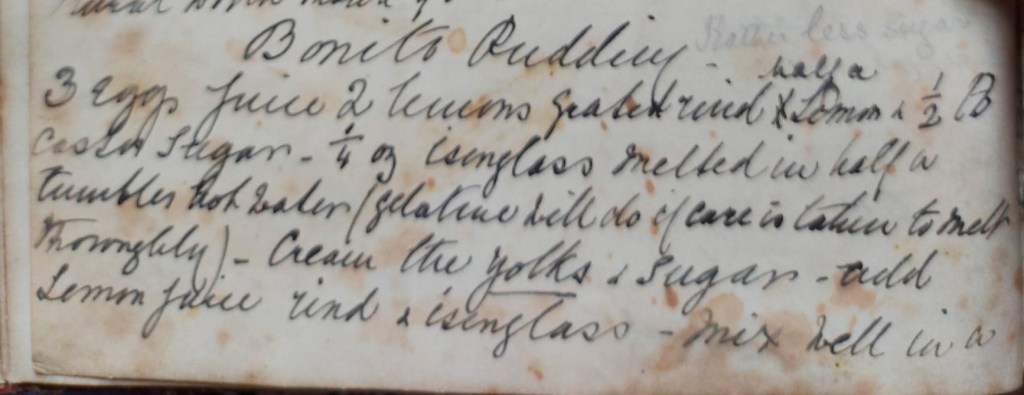 Bonito Pudding - Rather less sugar
half a
3 eggs juice 2 lemons grated rind Lemon & ½ lb
Castor Sugar - ¼ oz isenglass melted in half a
tumbler hot water (gelatine will do if care is taken to melt
thoroughly) - Cream the yolks & Sugar - add
Lemon juice rind & isenglass - Mix well in a